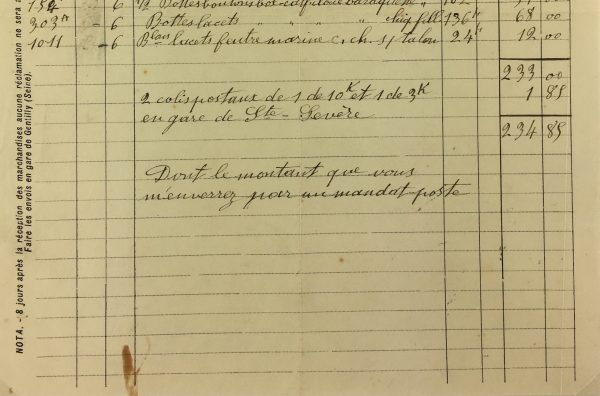 6 ½ Bottes boutons box-calf
303 - 6 Bottes lacets " " " " 136 68 00
1011 - 6 lacets feutre marine talon 24 12 00
233 00
2 colis postaux de 1 de 10K et 1 de 3K 1 85
en gare de Ste-Sevère
234 85
Dont le montant que vous
m'enverrez par un mandat poste
NOTA. - 8 jours après la réception des marchandises aucune réclamation ne sera
Faire les envois en gare de Gentilly (Seine).